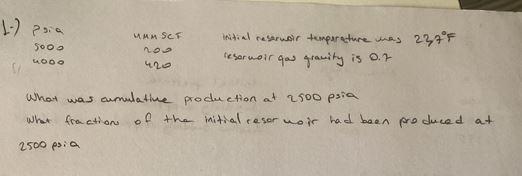 1-) psia MMM SCF initial reservuoir temperature was 237°F
5000 200 reservuoir gas gravity is 0.7
4000 420
What was cumulative production at 2500 psia
What fraction of the initial reservuoir had been produced at
2500 psia